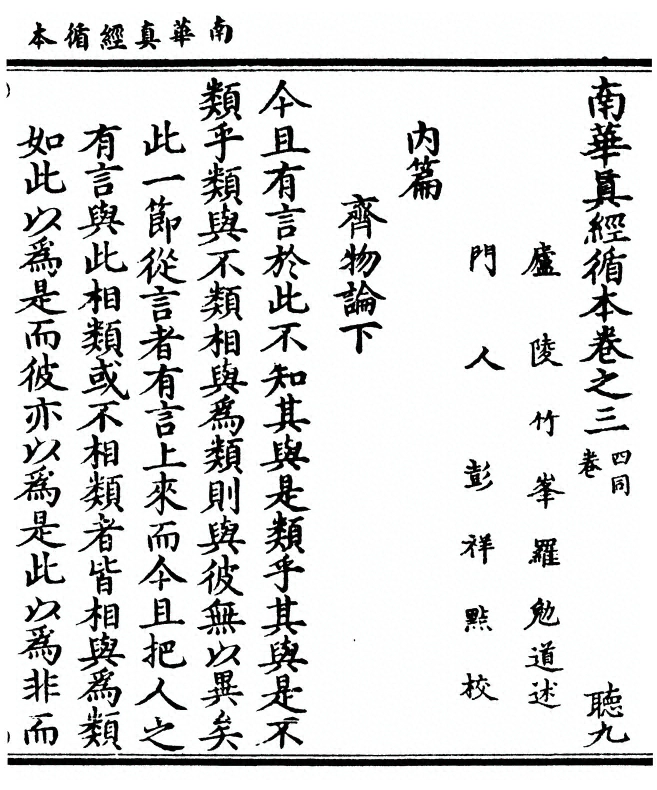 南華真經循本
南華眞經循本卷之三 四同卷 聽九
廬陵竹峯羅勉道述
門人彭祥點校
内篇
齊物論下
今且有言於此不知其與是類乎其與是不
類乎類與不類相與爲類則與彼無以異矣
此一節從言者有言上來而今且把人之
有言與此相類或不相類者皆相與爲類
如此以爲是而彼亦以爲是此以爲非而